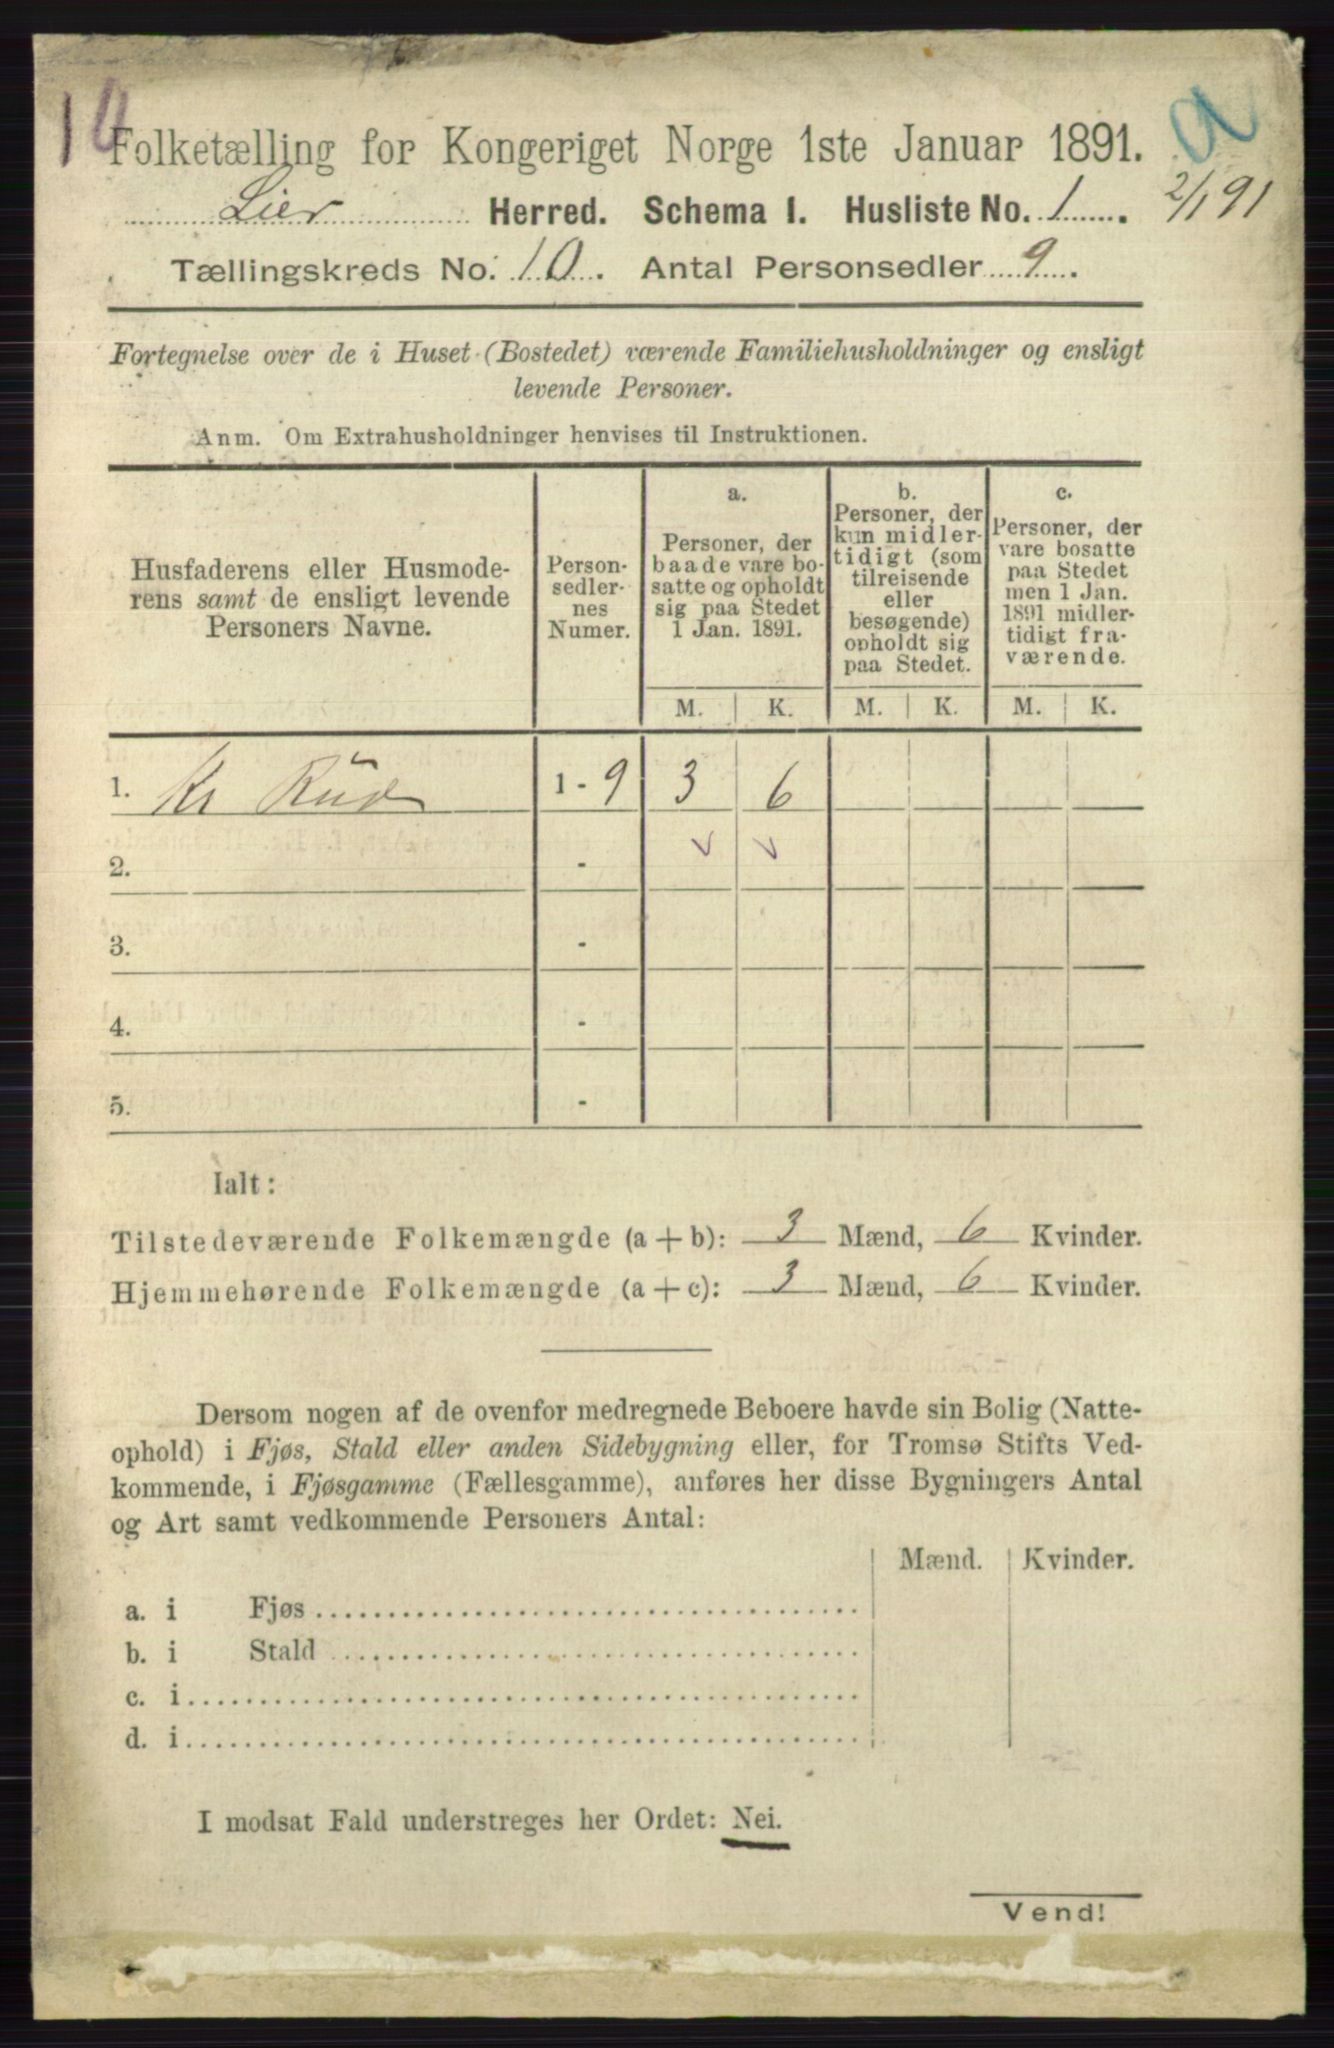 10
a
Folketælling for Kongeriget Norge 1ste Januar 1891.
Lier Herred. Schema I. Husliste No. 1.
2/1 91
Tællingskreds No. 10. Antal Personsedler 9.
Fortegnelse over de i Huset (Bostedet) værende Familiehusholdninger og ensligt
levende Personer.
Anm. Om Extrahusholdninger henvises til Instruktionen.
Husfaderens eller Husmode-
rens samt de ensligt levende
Personers Navne.
Person-
sedler-
nes
Numer.
a.
Personer, der
baade vare bo-
satte og opholdt
sig paa Stedet
1 Jan. 1891.
b.
Personer, der
kun midler-
tidigt (som
tilreisende
eller
besøgende)
opholdt sig
paa Stedet.
c.
Personer, der
vare bosatte
paa Stedet
men 1 Jan.
1891 midler-
tidigt fra-
værende.
M. K. M. K. M. K.
1. Kr Rud 1 - 9 3 6
2. -
3. -
4. -
5. -
Ialt:
Tilstedeværende Folkemængde (a + b): 3 Mænd, 6 Kvinder.
Hjemmehørende Folkemængde (a + c): 3 Mænd, 6 Kvinder.
Dersom nogen af de ovenfor medregnede Beboere havde sin Bolig (Natte-
ophold) i Fjøs, Stald eller anden Sidebygning eller, for Tromsø Stifts Ved-
kommende, i Fjøsgamme (Fællesgamme), anføres her disse Bygningers Antal
og Art samt vedkommende Personers Antal:
Mænd. Kvinder.
a. i Fjøs
b. i Stald
c. i
d. i
I modsat Fald understreges her Ordet: Nei.
Vend!